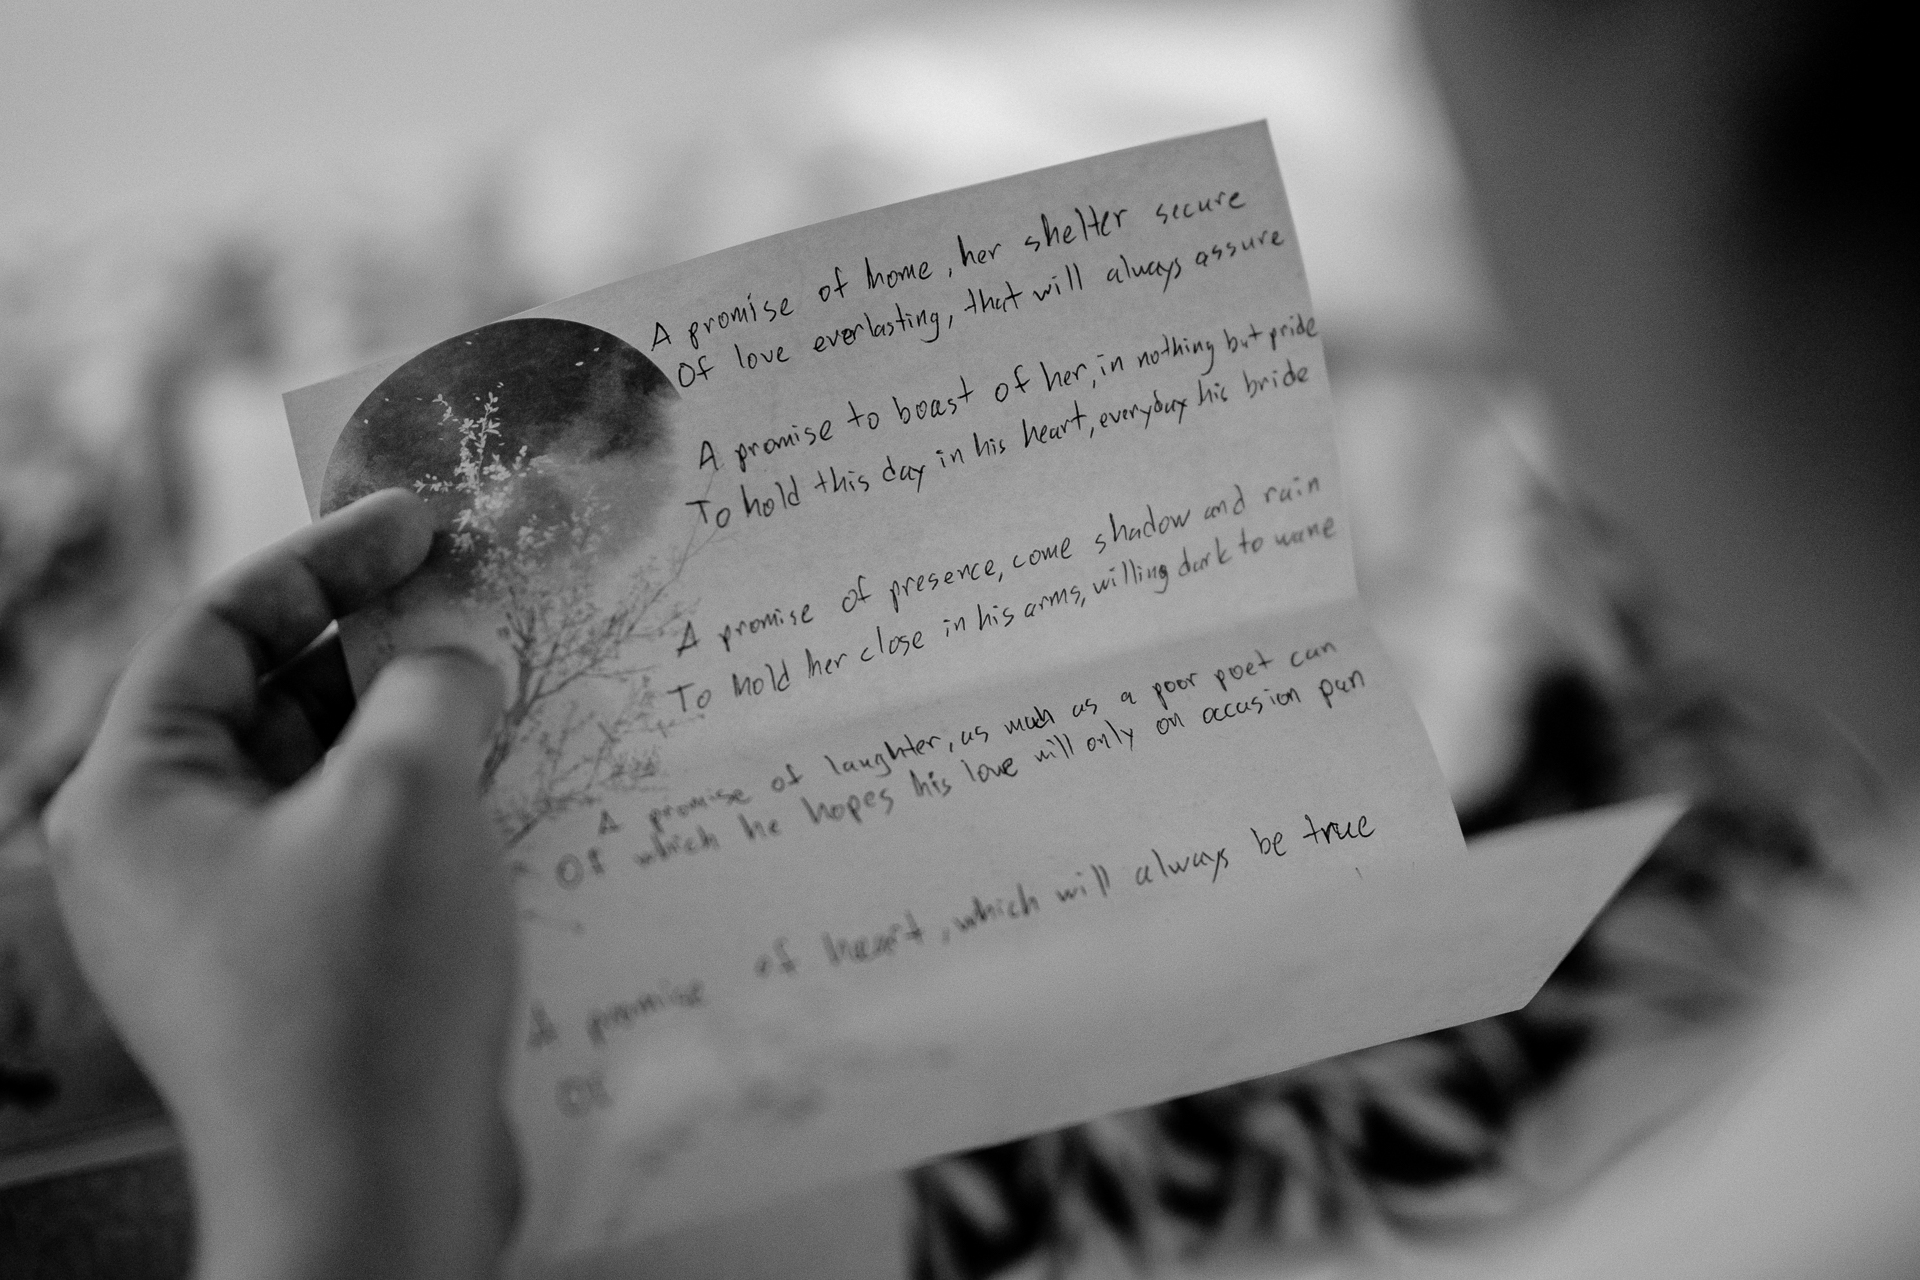 A promise of home, her shelter secure
Of love everlasting, that will always assure
A promise to boast of her, in nothing but pride
To hold this day in his heart, everyday his bride
A promise of presence, come shadow and rain
To hold her close in his arms, willing dark to wane
A promise of laughter, as much as a poor poet can
Of which he hopes his love will only on occasion pan
A promise of heart, which will always be true
Of